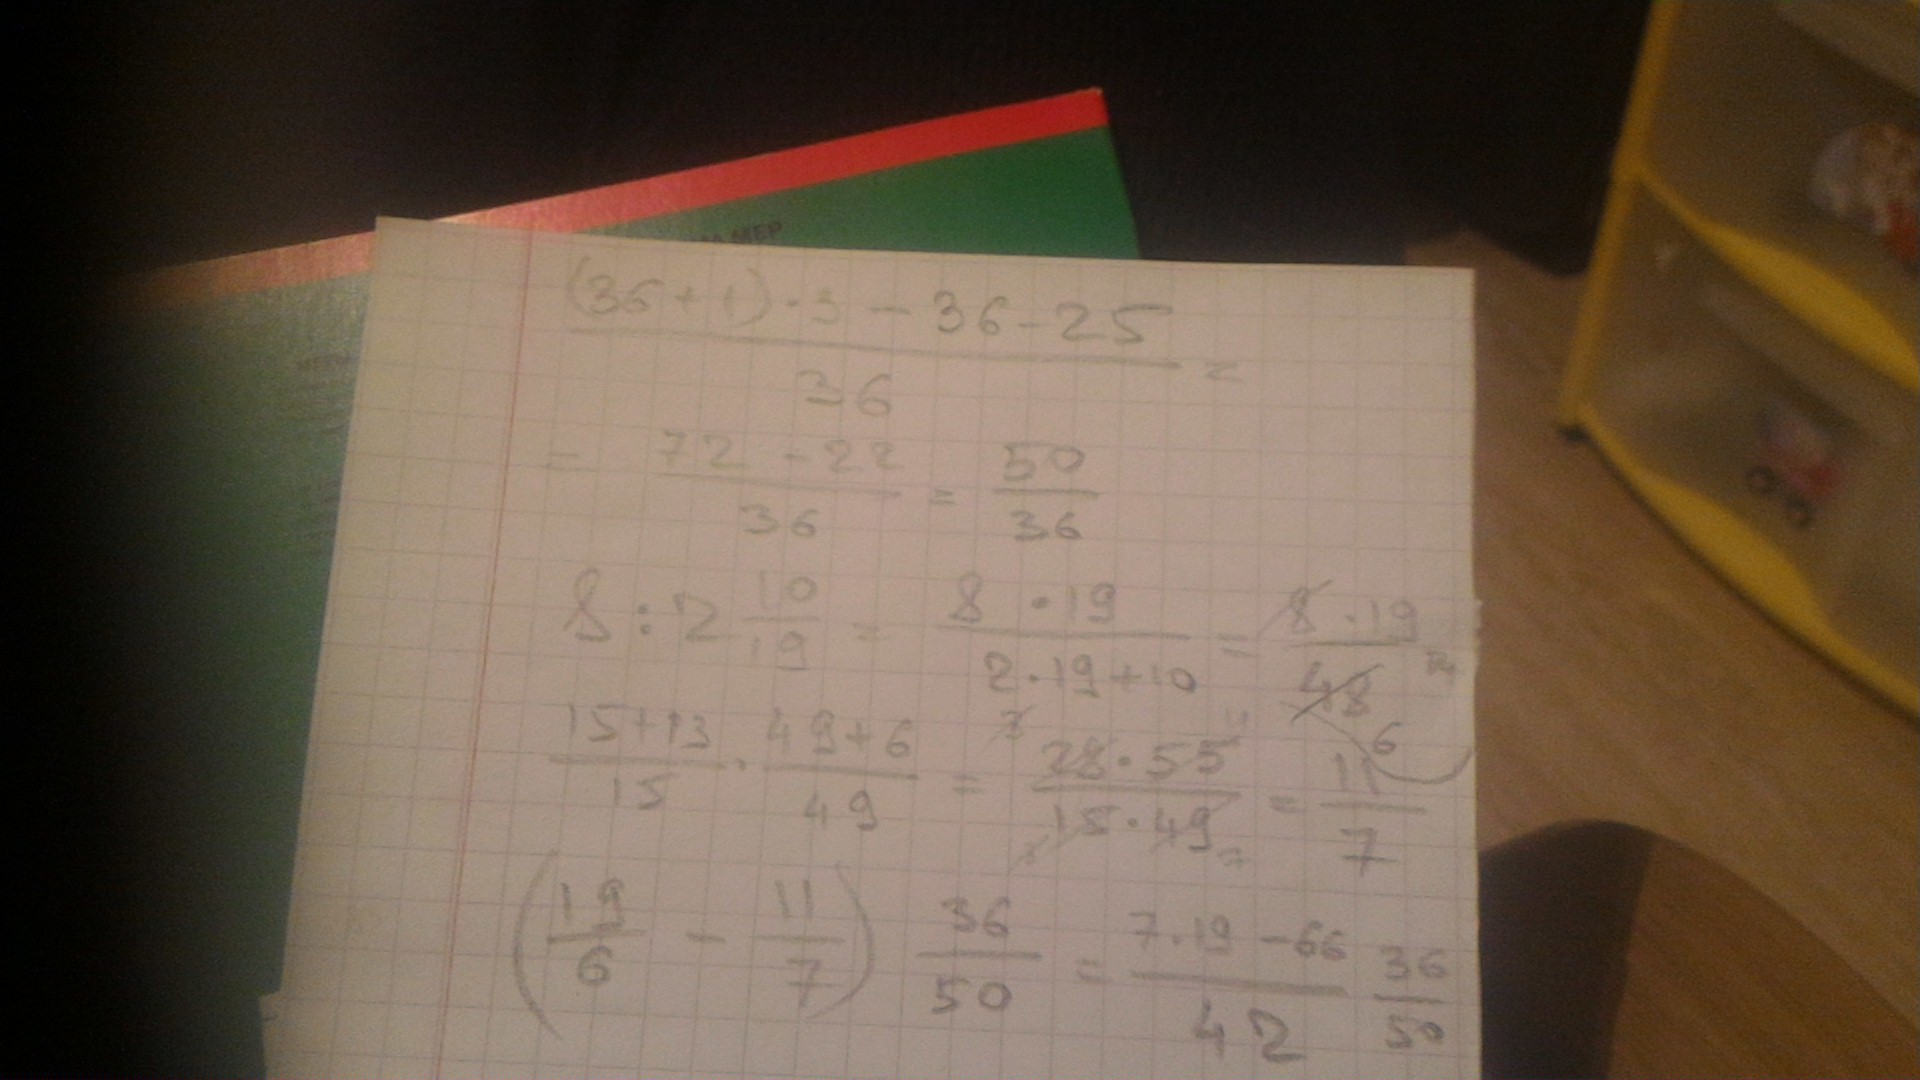 МЕР
(36+1)·3 - 36 - 25 / 36 =
= 72 - 22 / 36 = 50 / 36
8 : 2 10/19 = 8 · 19 / 2·19+10 = 8 · 19 / 48 6
15+13 / 15 · 49+6 / 49 = 28 · 55 / 15 · 49 7 = 11 / 7
(19/6 - 11/7) 36/50 = 7·19 - 66 / 42 36/50